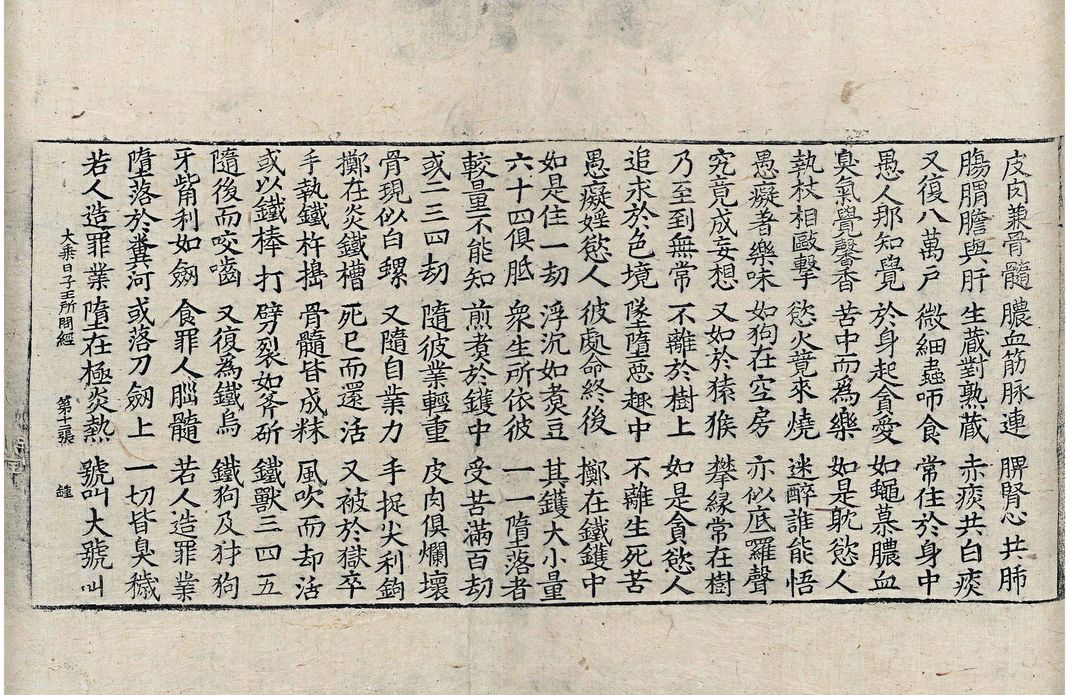 皮肉兼骨髓 膿血筋脉連 脾腎心共肺
膓胃膽與肝 生蔵對熟蔵 赤痰共白痰
又復八萬戸 微細蟲咂食 常住於身中
愚人那知覺 於身起貪愛 如蠅慕膿血
臭氣覺馨香 苦中而為樂 如是躭慾人
執杖相毆擊 慾火竟來燒 迷醉誰能悟
愚癡著樂味 如狗在空房 亦似底羅聲
究竟成妄想 又如於猿猴 攀縁常在樹
乃至到無常 不離於樹上 如是貪慾人
追求於色境 墜墮惡趣中 不離生死苦
愚癡婬慾人 彼處命終後 擲在鐵鑊中
如是住一劫 浮沉如煑豆 其鑊大小量
六十四俱胝 衆生所依彼 一一墮落者
較量不能知 煎煑於鑊中 受苦滿百劫
或二三四劫 隨彼業輕重 皮肉俱爛壞
骨現似白螺 又隨自業力 手捉尖利鉤
擲在炎鐵槽 死已而還活 又被於獄卒
手執鐵杵搗 骨髓皆成粖 風吹而却活
或以鐵棒打 劈裂如斧斫 鐵獸三四五
隨後而咬齒 又復為鐵烏 鐵狗及犲狗
牙觜利如劒 食罪人腦髓 若人造罪業
墮落於糞河 或落刀劒上 一切皆臭穢
若人造罪業 墮在極炎熱 號叫大號叫
大乘日子王所問經 第十二張 𡔷